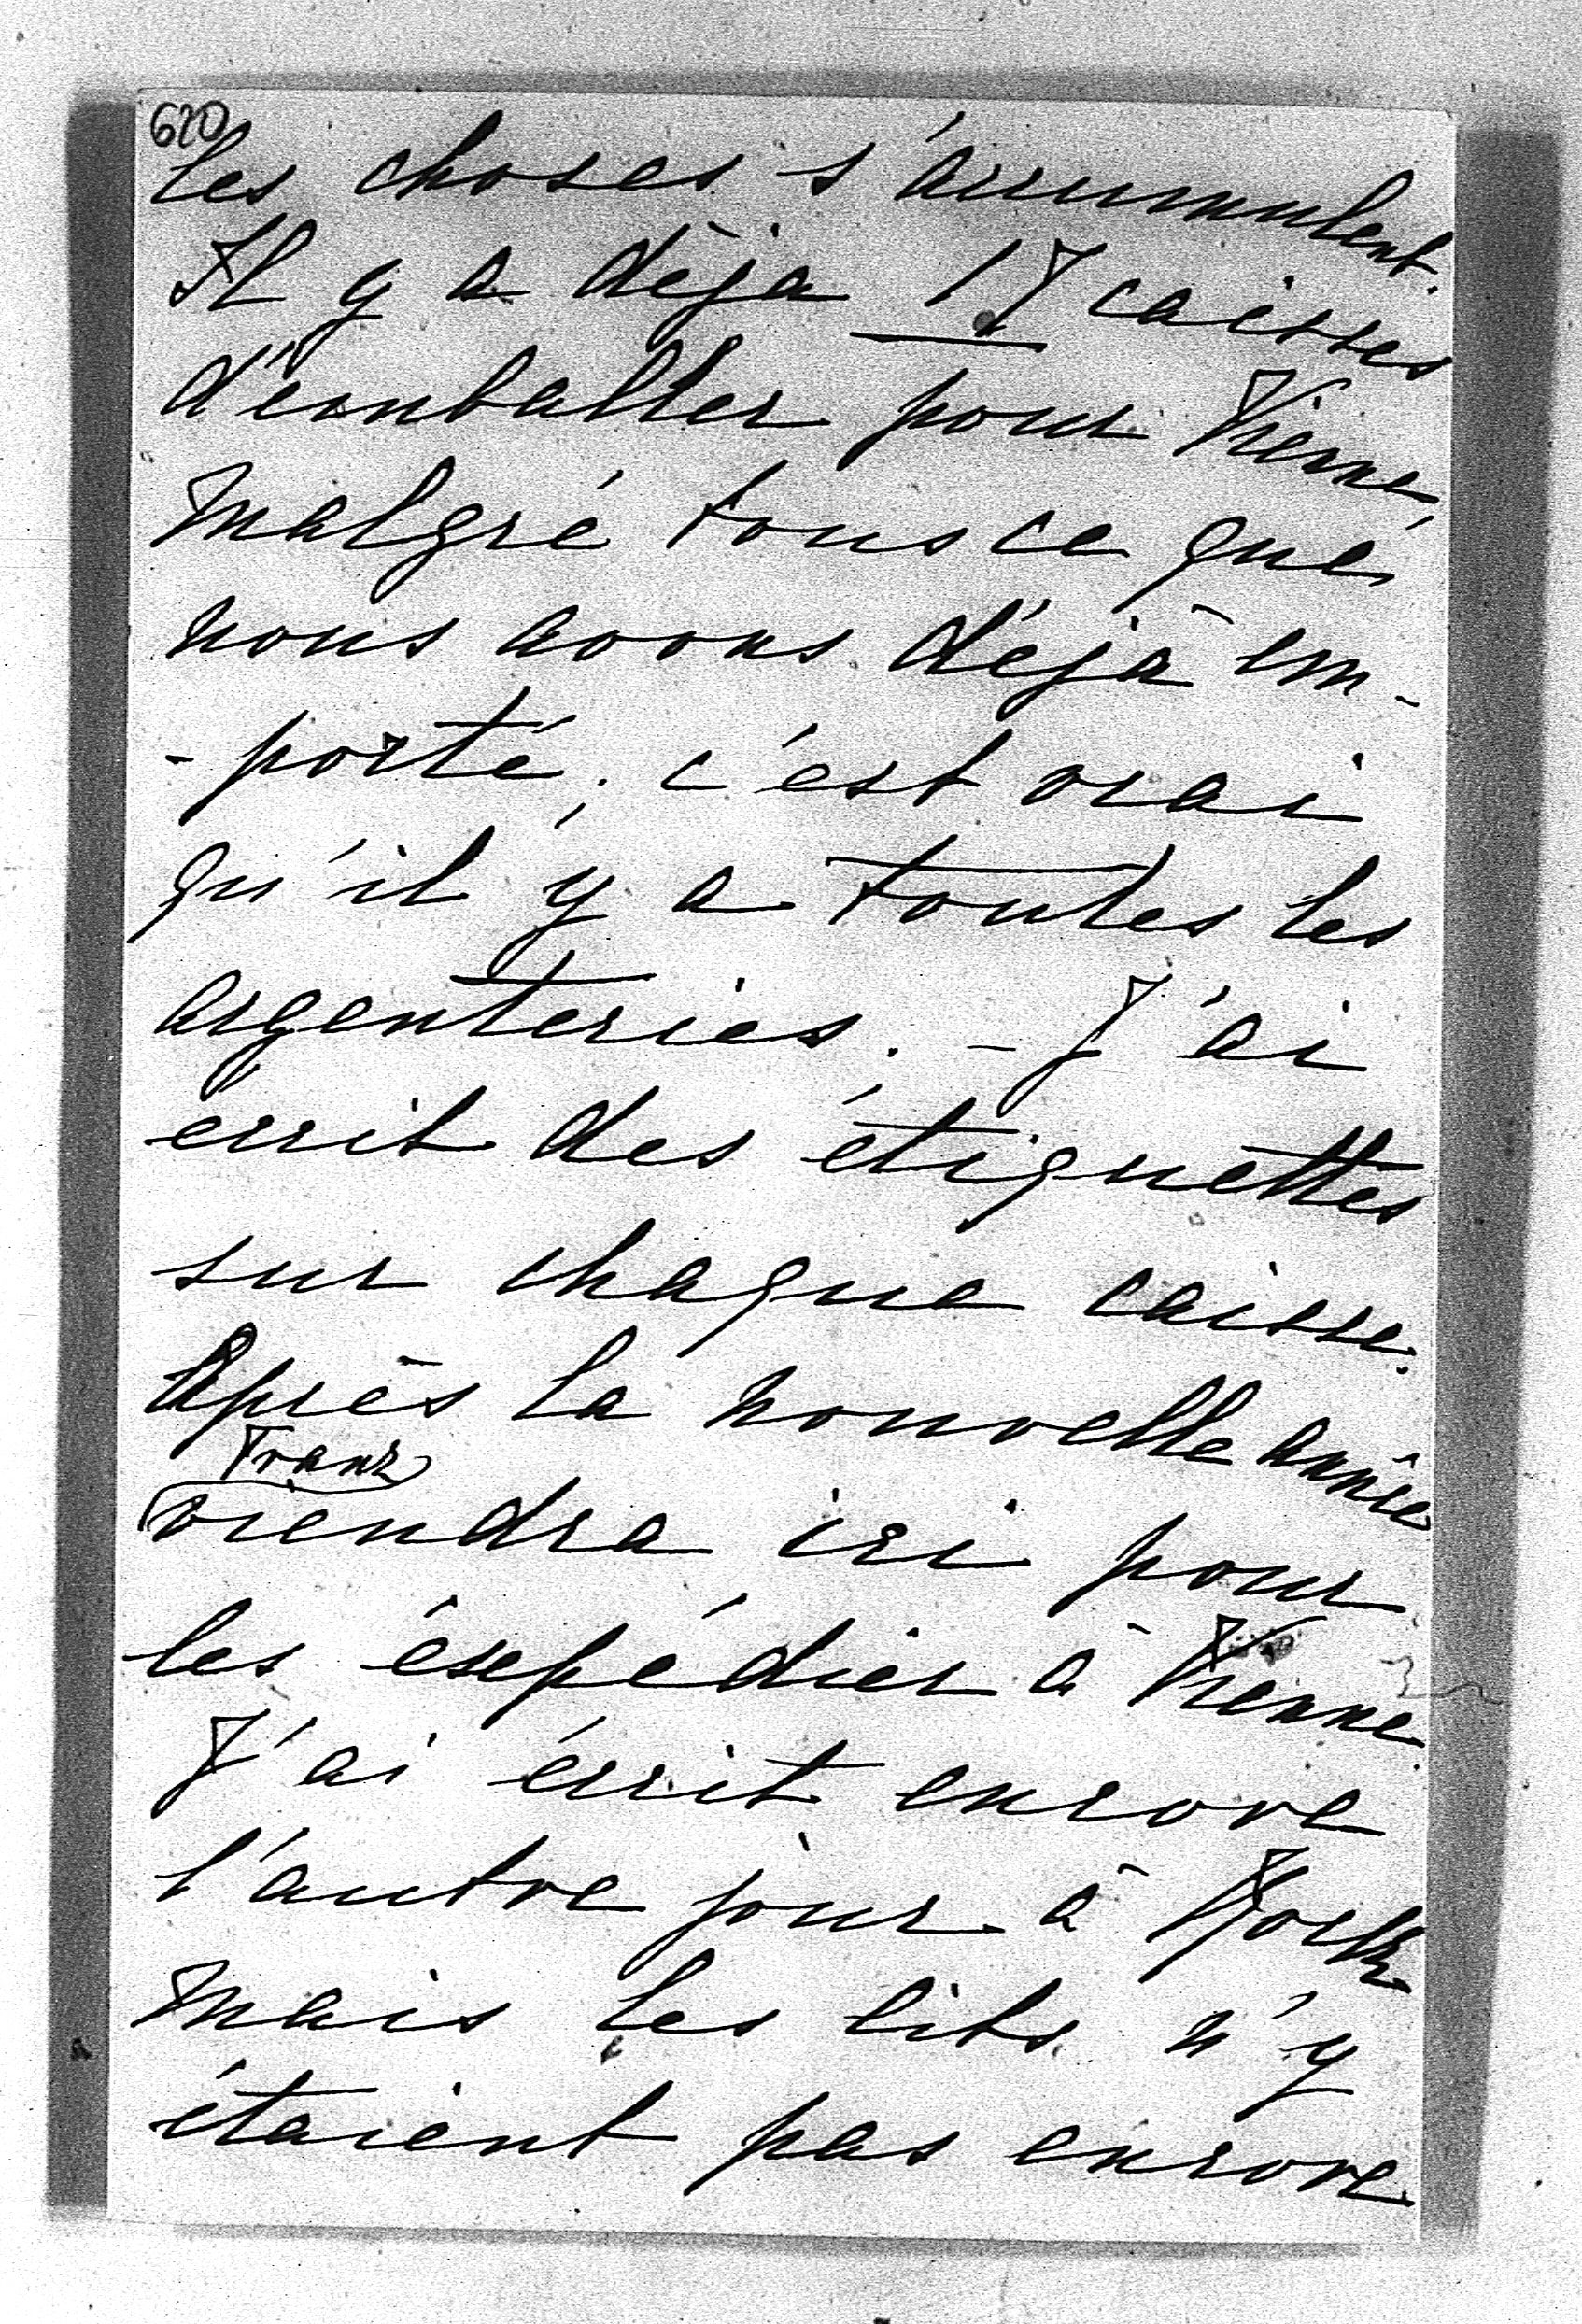 620
les choses s'accumulent.
Il y a déja 17 caisses
d'emballer pour Vienne,
malgré tous ce que
nous avons déjà em-
-porté, c'est vrai
qu'il y a toutes les
argenteries. - J'ai
écrit des étiquettes
sur chaque caisse.
Après la nouvelle année
Franz
viendra ici pour
les éxepédier à Vienne.
J'ai écrit encore
l'autre jour à
mais les lits n'y
étaient pas encore